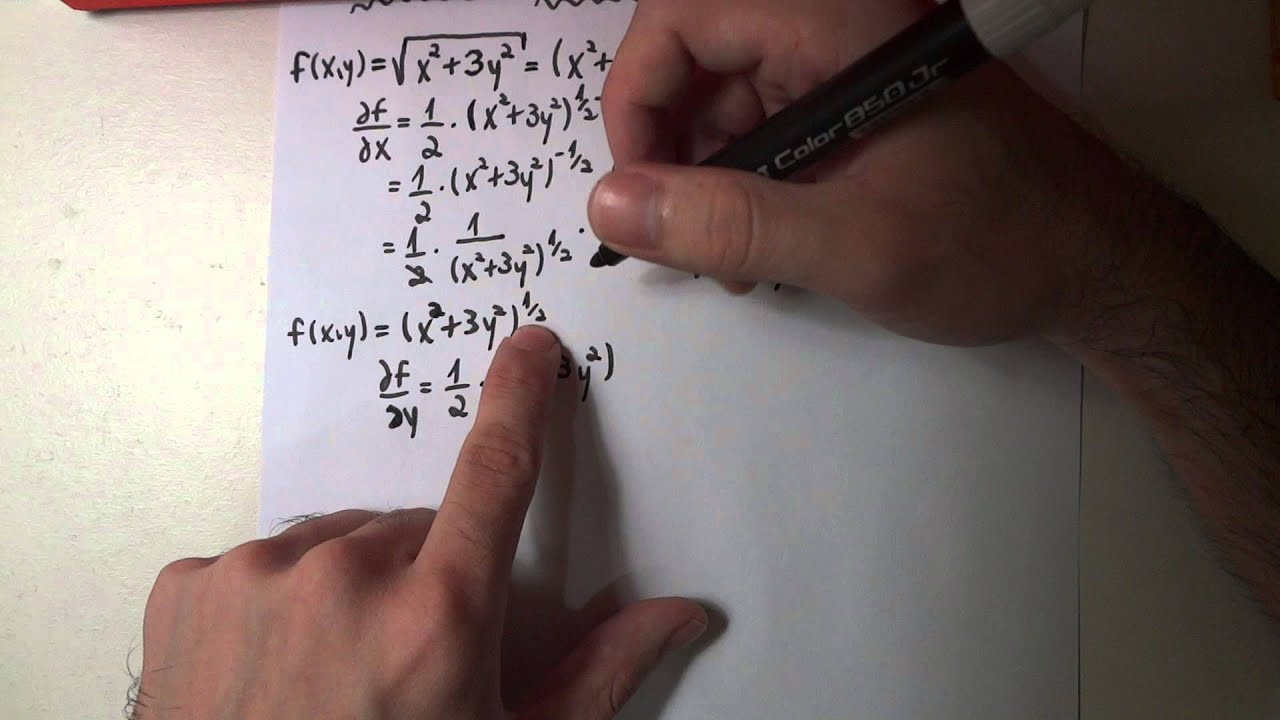 f(x,y) = √x² + 3y² = (x² +
∂f/∂x = 1/2 · (x² + 3y²)^1/2 -
= 1/2 · (x² + 3y²)^-1/2
= 1/2 · 1/(x² + 3y²)^1/2 ·
f(x,y) = (x² + 3y²)^1/2
∂f/∂y = 1/2 · 3y²)
Color 850 Jr